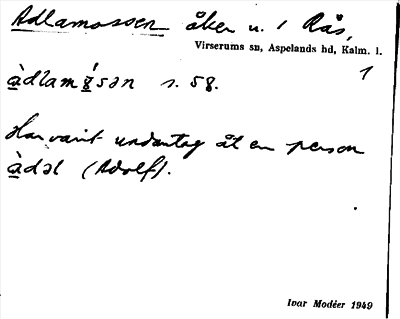 Adlamossen åker u. 1 Rås,
Virserums sn, Aspelands hd, Kalm. l.
1
àdlamɣ́sən s. 58.
Har varit undantag åt en person
àdəl (Adolf).
Ivar Modéer 1949